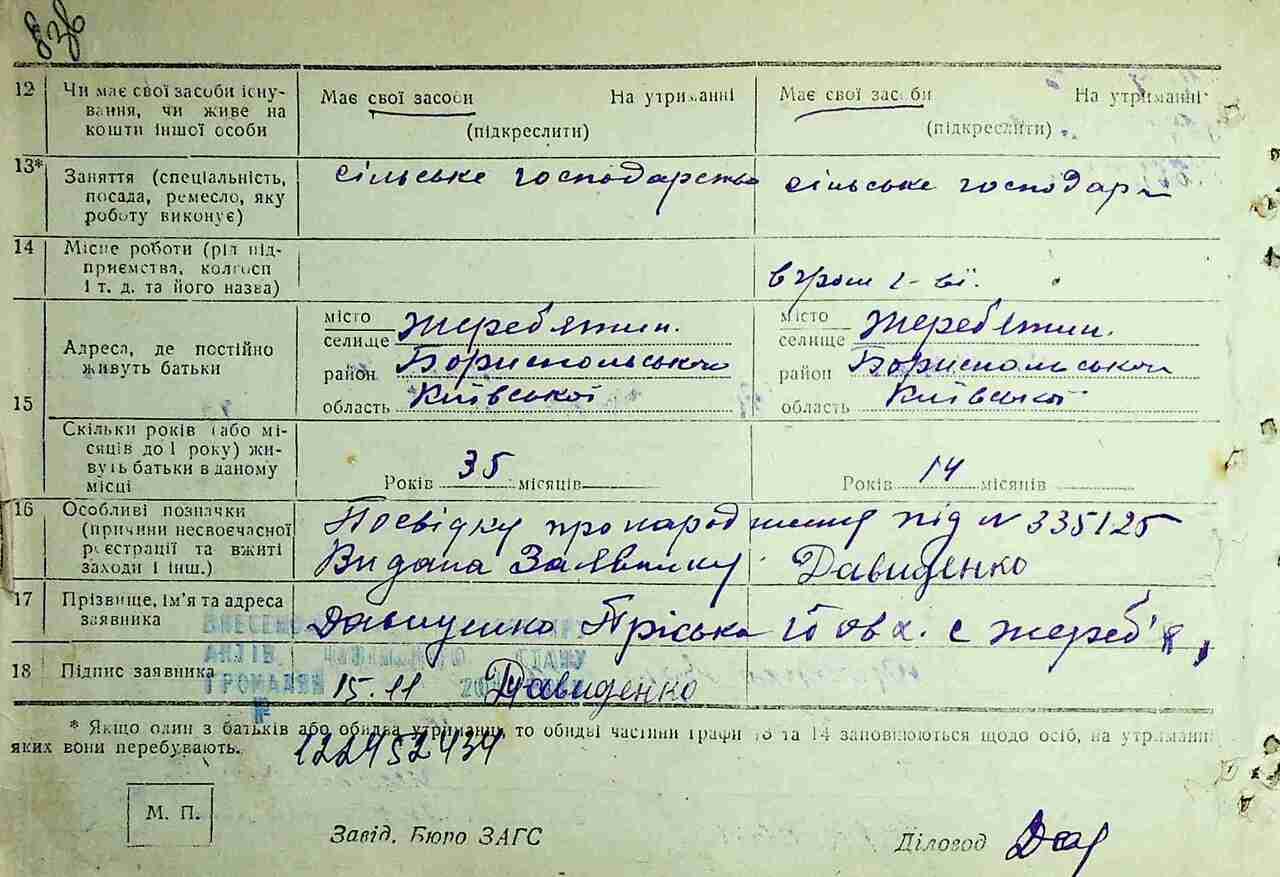 12 Чи має свої засоби існу-
вання, чи живе на
кошти іншої особи
Має свої засоби На утриманні
(підкреслити)
Має свої засоби На утриманні
(підкреслити)
13* Заняття (спеціальність,
посада, ремесло, яку
роботу виконує)
сільське господарство
сільське господар
14 Місце роботи (рід під-
приємства, колгосп
і т. д. та його назва)
15 Адреса, де постійно
живуть батьки
місто
селище Жереб'ятин.
район Бориспольського
область Київської
місто
селище Жереб'ятин.
район Бориспольського
область Київської
Скільки років (або мі-
сяців до 1 року) жи-
вуть батьки в даному
місці
Років 35 місяців
Років 14 місяців
16 Особливі позначки
(причини несвоєчасної
реєстрації та вжиті
заходи і інш.)
Посвідку про народження під № 335125
Видана Заявнику Давиденко
17 Прізвище, ім'я та адреса
заявника
Давиденко Пріська с Жереб'я
18 Підпис заявника
15.11 Давиденко
АКТІВ ЦИВІЛЬНОГО СТАНУ
ГРОМАДЯН
№
* Якщо один з батьків або обидва утриманці, то обидві частини графи 13 та 14 заповнюються щодо осіб, на утриманні
яких вони перебувають.
122452434
М. П.
Завід. Бюро ЗАГС
Діловод